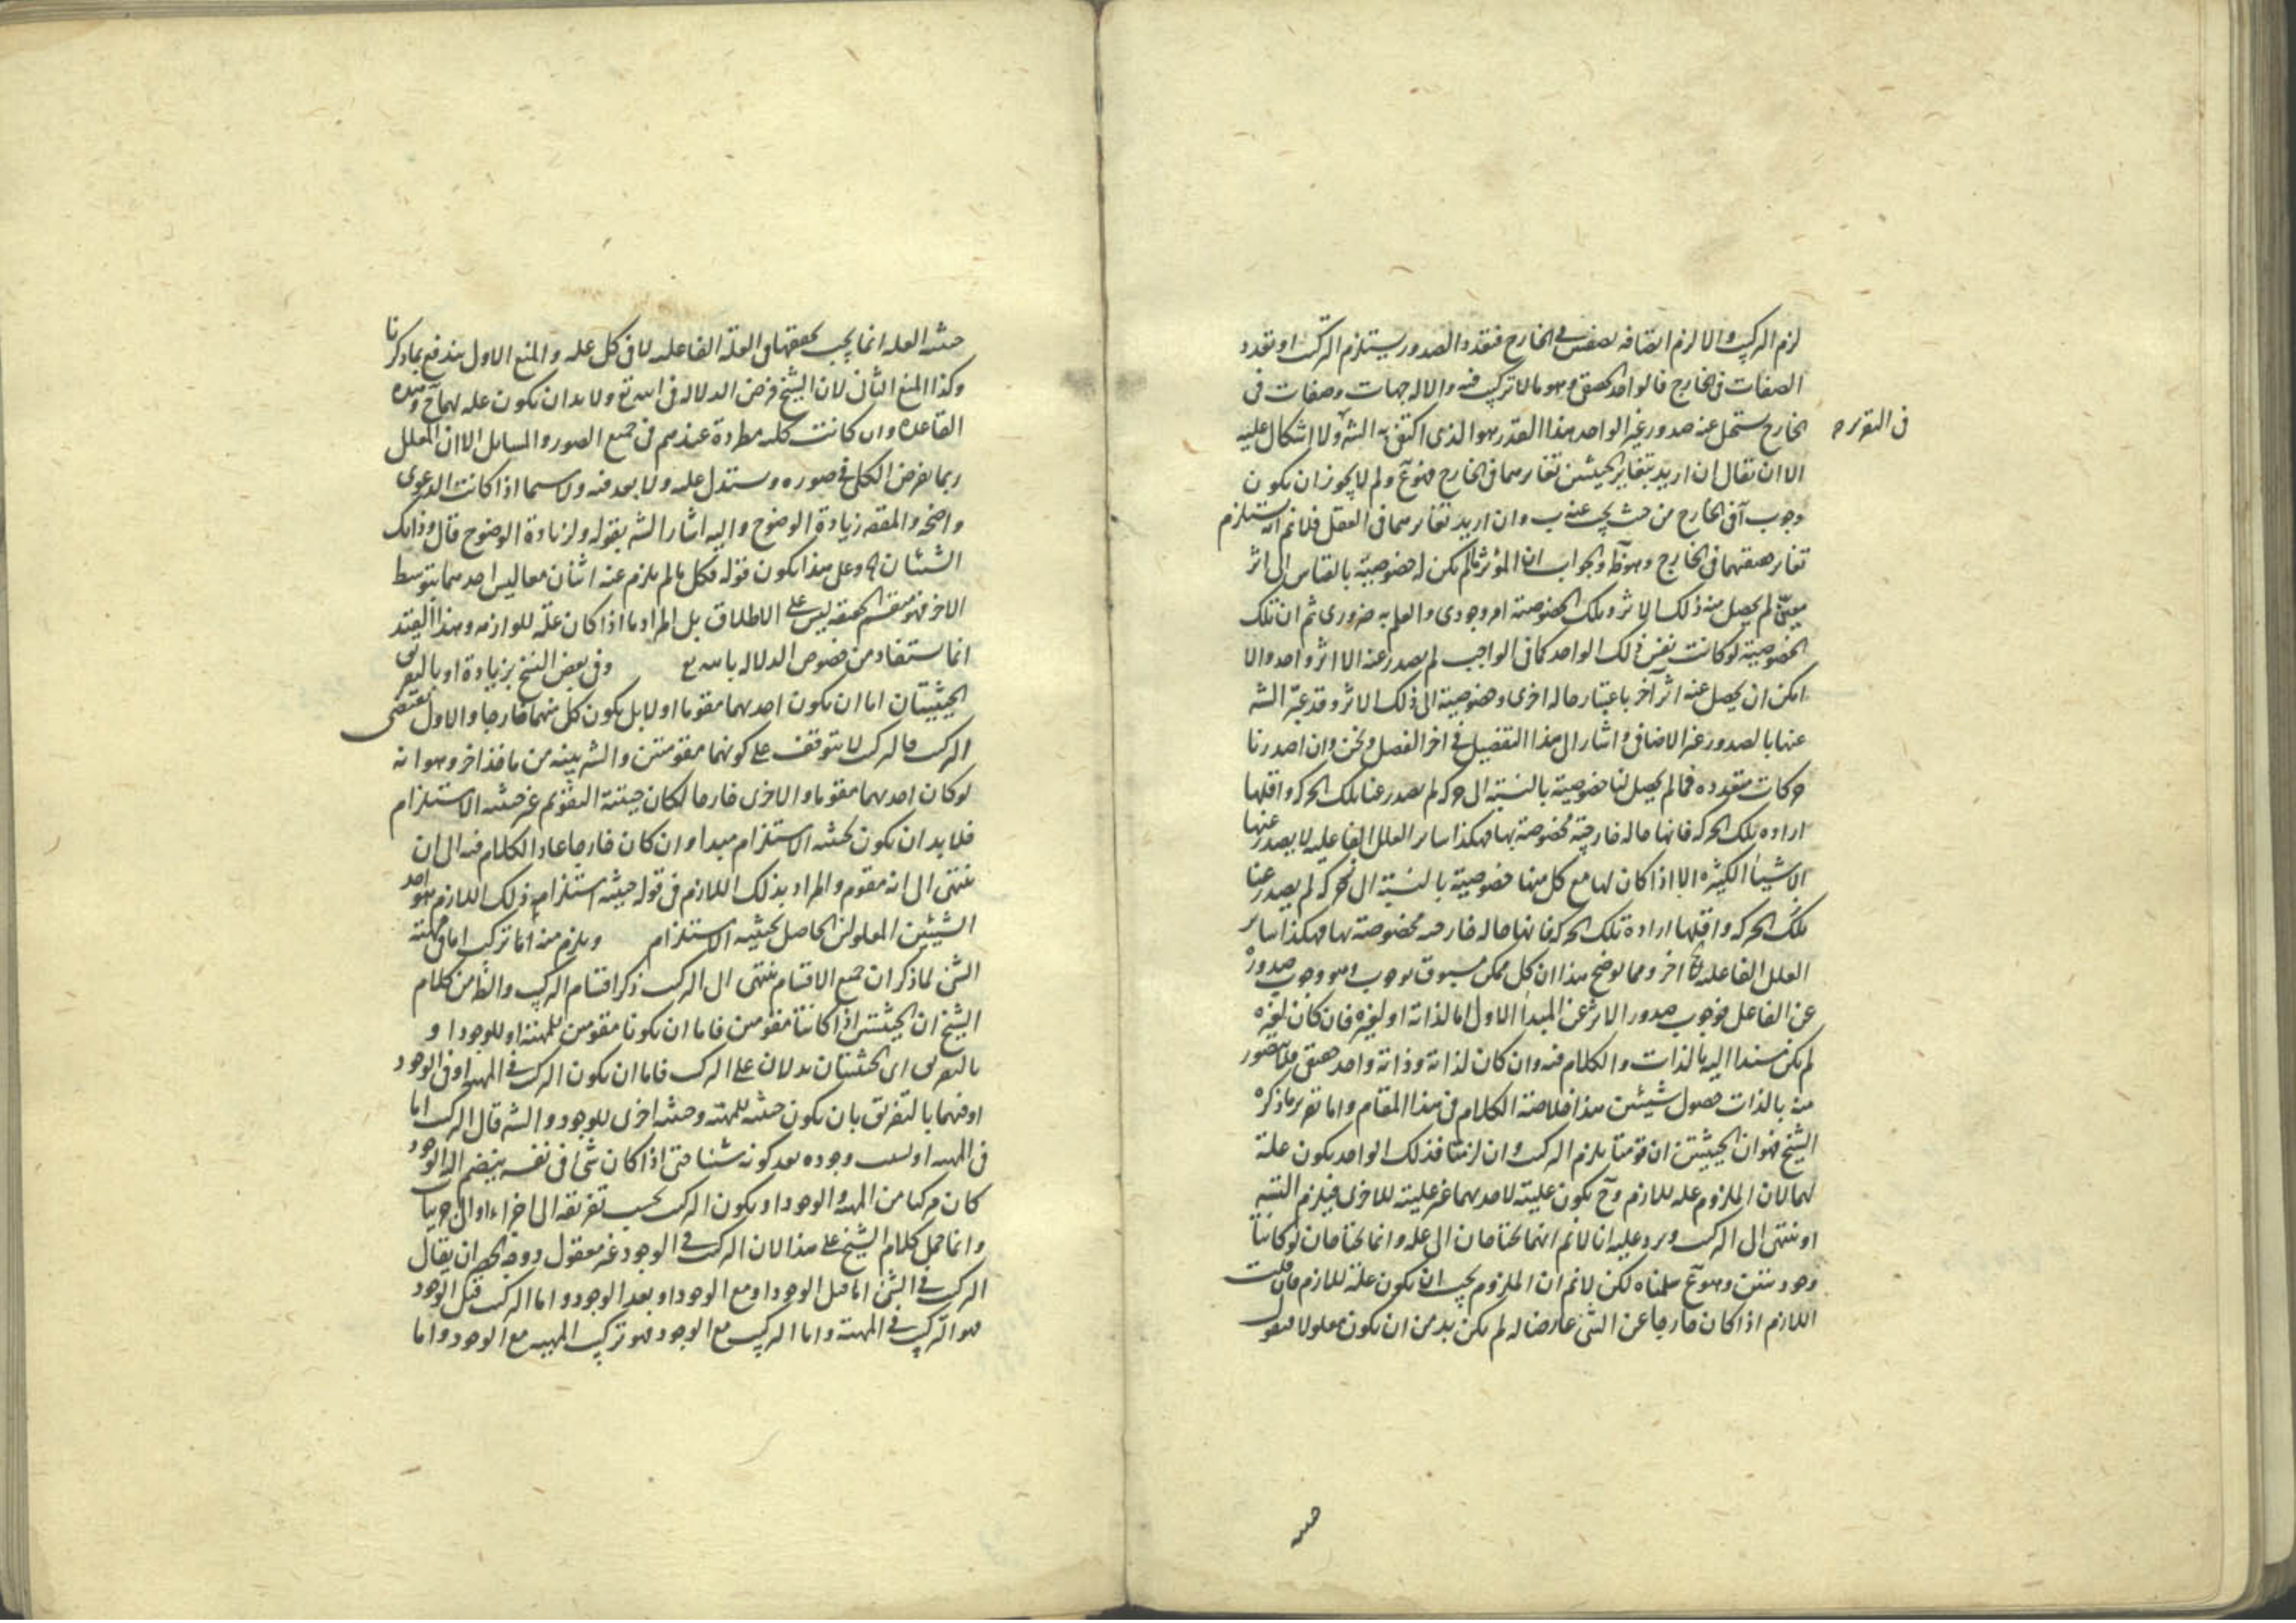 لزم التركيب والا لزم اتصافه بصفتين في الخارج فتعدد الصدور يستلزم التركب او تعدد
الصفات في الخارج فالواحد الحقيقي وهو ما لا تركيب فيه والا له جهات وصفات في
الخارج يستحيل عنه صدور غير الواحد هذا القدر هو الذي اكتفى به الشه ولا اشكال عليه
في التقرير
الا ان يقال ان اريد بتغاير الحيثيتين تغايرهما في الخارج فهو مع ولم لا يجوز ان يكون
وجوب آ في الخارج من حيث يجب عنه ب وان اريد تغايرهما في العقل فلانم انه يستلزم
تغاير حقيقتهما في الخارج وهو ظ والجواب ان المؤثر ما لم يكن له خصوصية بالقياس الى اثر
معين لم يحصل منه ذلك الاثر وتلك الخصوصية امر وجودي والعلم به ضروري ثم ان تلك
الخصوصية لو كانت نفس ذلك الواحد كما في الواجب لم يصدر عنه الا اثر واحد والا
امكن ان يحصل عنه اثر آخر باعتبار حاله اخرى وخصوصية الى ذلك الاثر وقد عبر الشه
عنها بالصدور غير الاضافي واشار الى هذا التفصيل في اخر الفصل ونحن وان اصدرنا
حركات متعدده فما لم يحصل لنا خصوصية بالنسبة الى حركه لم يصدر عنا تلك الحركه واقلها
اراده تلك الحركه فانها حاله خارجية مخصوصة بها فهكذا ساير العلل الفاعليه لا يصدر عنها
الاشياء الكثيره الا اذا كان لها مع كل منها خصوصية بالنسبة الى حركه لم يصدر عنا
تلك الحركه واقلها ارادة تلك الحركه فانها حاله خارجيه مخصوصة بها فهكذا ساير
العلل الفاعليه اخر ومما يوضح هذا ان كل ممكن مسبوق بوجوب وهو وجوب صدوره
عن الفاعل فوجوب صدور الاثر عن المبدأ الاول اما لذاته او لغيره فان كان لغيره
لم يكن مسندا اليه بالذات والكلام فيه وان كان لذاته وذاته واحد حقيقي فلا يتصور
منه بالذات حصول شيئين هذا خلاصة الكلام في هذا المقام واما تقرير ما ذكره
الشيخ فهو ان الحيثيتين ان قومتا يلزم التركيب وان لزمتا فذلك الواحد يكون علة
لهما لان الملزوم عله للازم وح يكون علية لاحدهما غير علية للاخرى فيلزم التسه
او ينتهي الى التركيب ويرد عليه انا لانم انهما يحتاجان الى عله وانما يحتاجان لو كانتا
وجوديتين وهو مع سلمناه لكن لانم ان الملزوم يجب ان يكون علة للازم فان قلت
اللازم اذا كان خارجا عن الشئ عارضا له لم يكن بد من ان يكون معلولا فنقول
حيثيه العله انما يجب تحققها في العلة الفاعليه لا في كل عله والمنع الاول يندفع بما ذكرنا
وكذا المنع الثاني لان الشيخ فرض الدلاله في الله تع ولا بد ان يكون عله لهما ح وهذه
القاعده وان كانت كليه مطردة عندهم في جميع الصور والمسايل الا ان المعلل
ربما يفرض الكلي في صوره ويستدل عليه ولا بعد فيه ولا سيما اذا كانت الدعوى
واضحه والمقصه زيادة الوضوح واليه اشار الشه بقوله ولزيادة الوضوح قال وذلك
الشيئان آه وعلى هذا يكون قوله فكل ما لم يلزم عنه اثنان معا ليس احدهما بتوسط
الاخر فهو منقسم الحقيقه ليس على الاطلاق بل المراد ما اذا كان علة للوازمه وهذا القيد
انما يستفاد من خصوص الدلاله بالله تع وفي بعض النسخ بزيادة او بالتفريق
الحيثيتان اما ان يكون احدهما مقوما او لا بل يكون كل منهما خارجا والاول يقتضى
التركيب فالتركب لا يتوقف على كونهما مقومتين والشه بينه من ماخذ اخر وهو انه
لو كان احدهما مقوما والاخرى خارجا لكان حيثية التقويم غير حيثيه الاستلزام
فلا بد ان يكون لحيثيه الاستلزام مبدا وان كان خارجا عاد الكلام فيه الى ان
ينتهي الى انه مقوم والمراد بذلك اللازم في قوله حيثية استلزام ذلك اللازم هو احد
الشيئين المعلولين الحاصل بحيثيه الاستلزام ويلزم منه اما تركيب اما في مهيته
الشئ لما ذكر ان جميع الاقسام ينتهي الى التركب ذكر اقسام التركيب والظ من كلام
الشيخ ان الحيثيتين اذا كانتا مقومتين فاما ان يكونا مقومين للمهية او للوجود او
بالتفريق اى الحيثيتان يدلان على التركيب فاما ان يكون التركيب في المهيه او في الوجود
او فيهما بالتفريق بان يكون حيثيه للمهيه وحيثيه اخرى للوجود والشه قال التركيب اما
في المهيه او بسبب وجوده بعد كونه شيئا حتى اذا كان شئ في نفسه ينضم اليه الوجود
كان مركبا من المهيه والوجود او يكون التركيب بحسب تفريقه الى اجزاء او الى جزئيات
وانما حمل كلام الشيخ على هذا لان التركيب في الوجود غير معقول ووجه الحصر ان يقال
التركيب في الشئ اما قبل الوجود او مع الوجود او بعد الوجود واما التركيب قبل الوجود
فهو التركيب في المهية واما التركيب مع الوجود فهو تركيب المهيه مع الوجود واما